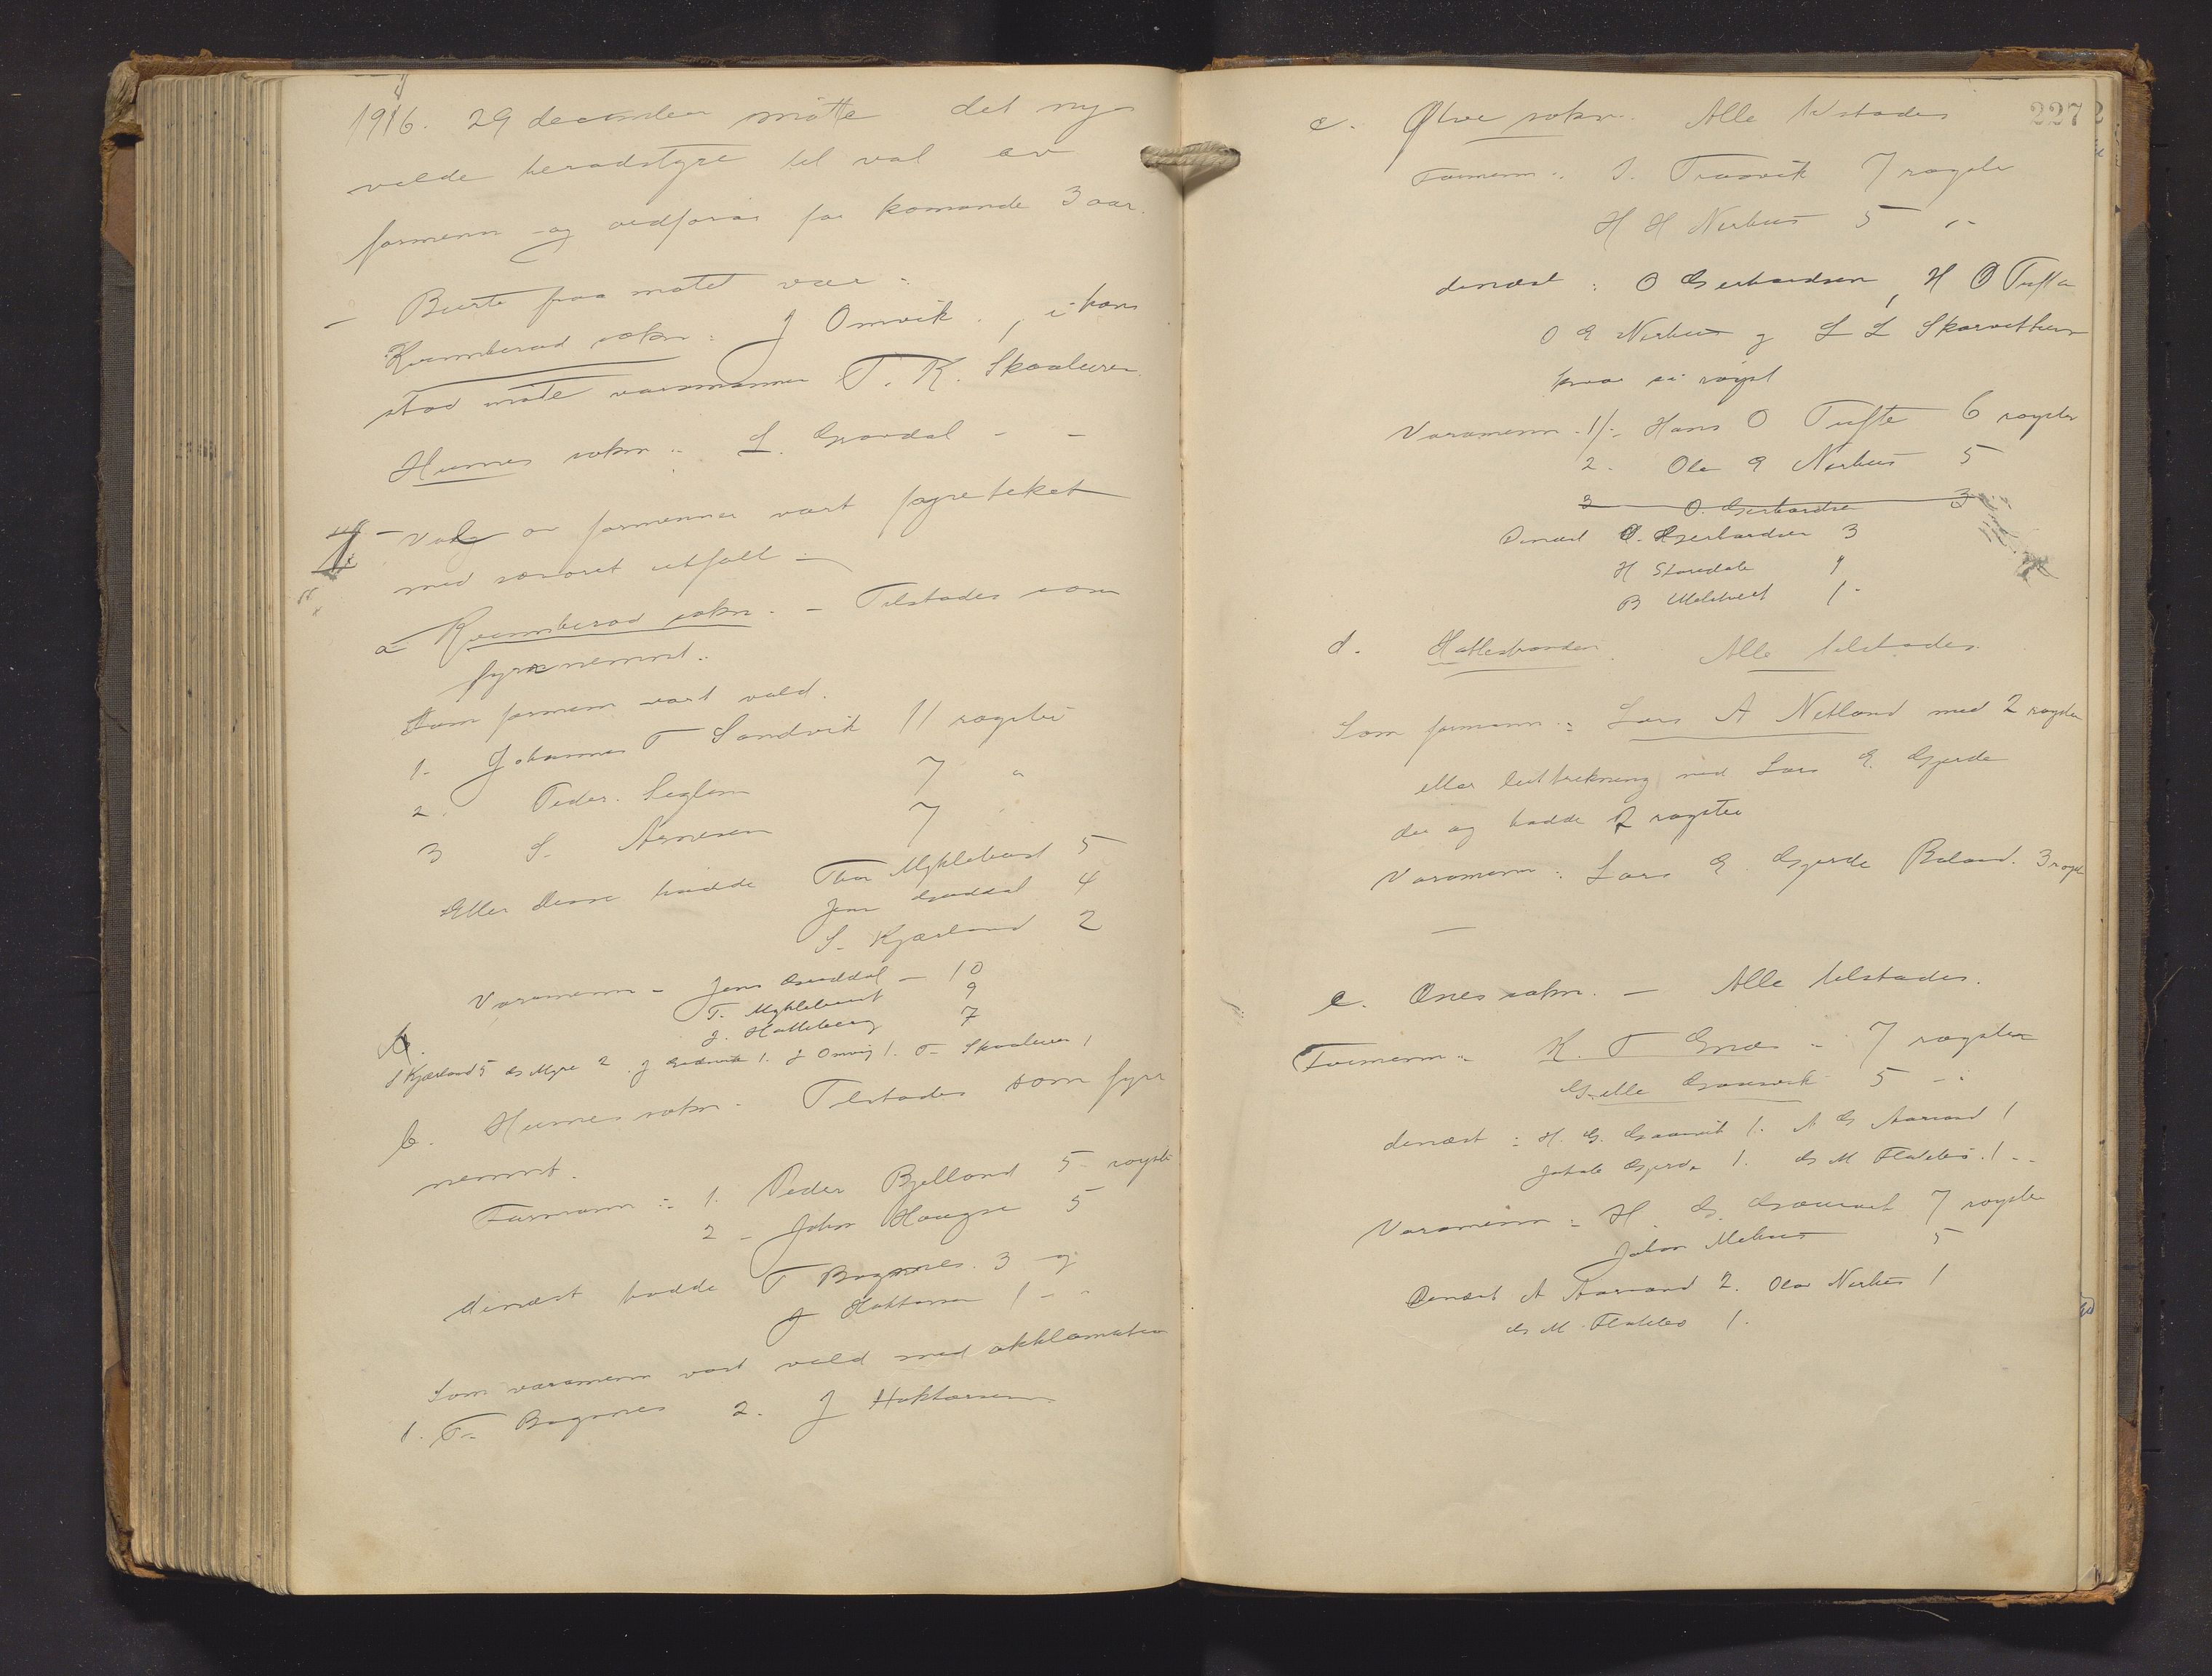 1916. 29 december møtte det ny-
valde heradstyre til val av
formenn og ordførar for komande 3 aar.
- Burte fraa møtet var:
Kvinnherad sokn: J Omvik, i hans
stad møtte varamannen T. K. Skaaluren.
Husnes sokn: L. Opordal - -
- Valg av formenner vart fyreteket
med sororet utfall:
a Kvinnherad sokn. - Tilstades som
fyrr nemnt.
Som formenn vart vald.
1. Johannes T Sandvik 11 røyster
2. Peder Seglem 7 "
3 S. Arnesen 7
Etter desse hadde Thor Myklebust 5
Jens Guddal 4
S. Kjærland 2
Varamenn - Jens Guddal - 10
T. Myklebust 9
J. Hatteberg 7
S Kjærland 5 G Myre 2. J Sandvik 1. J Omvig 1. T. Skaaluren 1
b. Husnes sokn. Tilstades som fyrr
nemnt.
Formann: 1. Peder Bjelland 5 røyster
2 - John Haugse 5
dinæst hadde T Bogsnes 3 og
J Hoktarsen 1 - -
Som varamenn vart vald med akklamation
1. T. Bogsnes 2. J Hoktarsen
227
c. Ølve sokn. Alle tilstades
Formenn: J. Trovik 7 røyster
H H Nerhus 5 "
dinæst: O Gerhardsen, H O Tufte
O E Nerhus og L L Skarvethun
kvar ei røyst
Varamenn: 1/. Hans O Tufte 6 røyster
2. Ola E Nerhus 5
3 O. Gerhardsen 3
Dinæst O. Gjerhardsen 3
H Storedale 1
B Melhust 1 -
d. Hatlestranden. Alle tilstades.
Som formann: Lars A Netland med 2 røyster
etter luttrekning med Lars E. Gjerde
der og hadde 2 røyster
Varamenn: Lars E Gjerde Baland. 3 røyst
e. Ænes sokn. - Alle tilstades.
Formenn: K. T Enes - 7 røyster
Gjelle Gaarvik 5 - "
dinæst: H. G. Gaarvik 1. A G Aarsand 1
Jakob Gjerde 1. G M Flatebø. 1 - -
Varamenn: H. G. Gaarvik 7 røyster
Johan Mehus 5
Dinæst A Aarsand 2. Ola Nerhus 1
G M Flatebø 1.